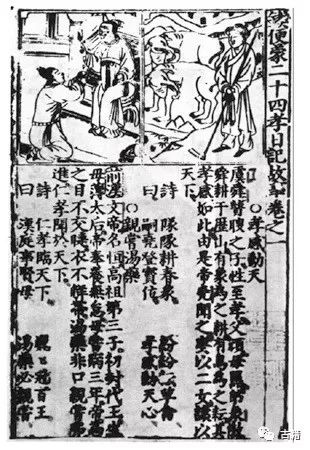 便蒙二十四孝日記故事卷之一
○孝感動天
虞舜瞽瞍之子性至孝父頑母嚚弟象傲
舜耕于歷山有象為之耕有鳥為之耘其
孝感如此由是帝堯聞之妻以二女讓以
天下
詩 隊隊耕春象 紛紛耘草禽
曰 嗣堯登寶位 孝感動天心
○親嘗湯藥
前漢文帝名恒高祖第三子初封代王生
母薄太后帝奉養無怠母嘗病三年帝為
之目不交睫衣不解帶湯藥非口親嘗弗
進仁孝聞於天下
詩 仁孝臨天下 巍巍冠百王
曰 漢庭事賢母 湯藥必親嘗
古籍